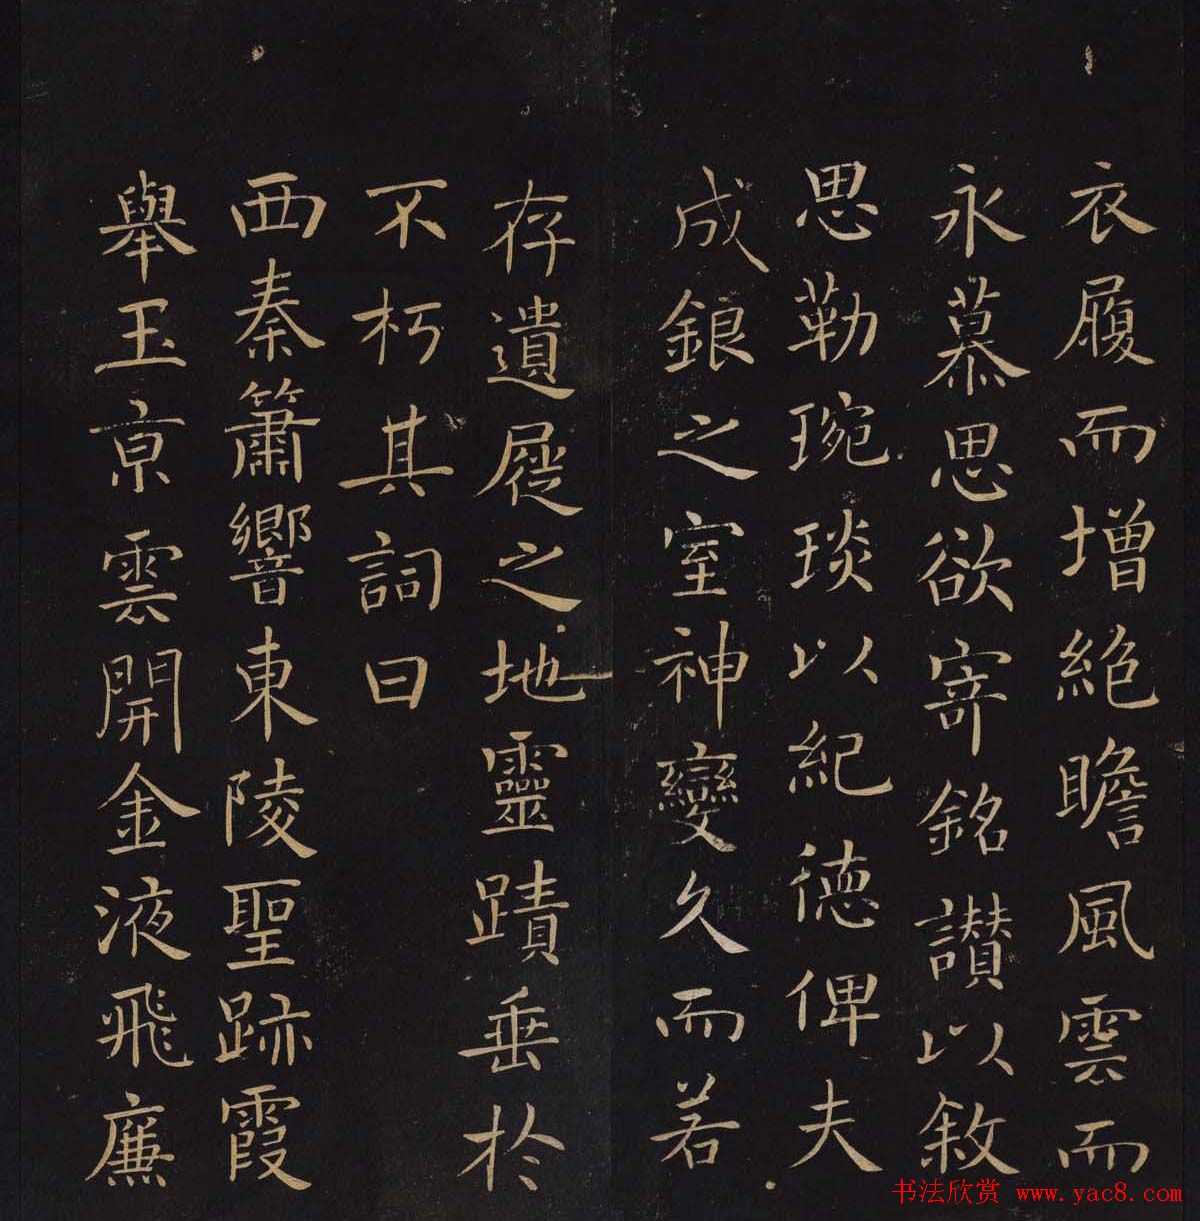 衣履而增絶瞻風雲而
永慕思欲寄銘讃以敘
思勒琬琰以紀德俾夫
成銀之室神變久而若
存遺屣之地靈蹟垂於
不朽其詞曰
西秦簫響東陵聖跡霞
舉玉京雲開金液飛廉
书法欣赏 www.yac8.com